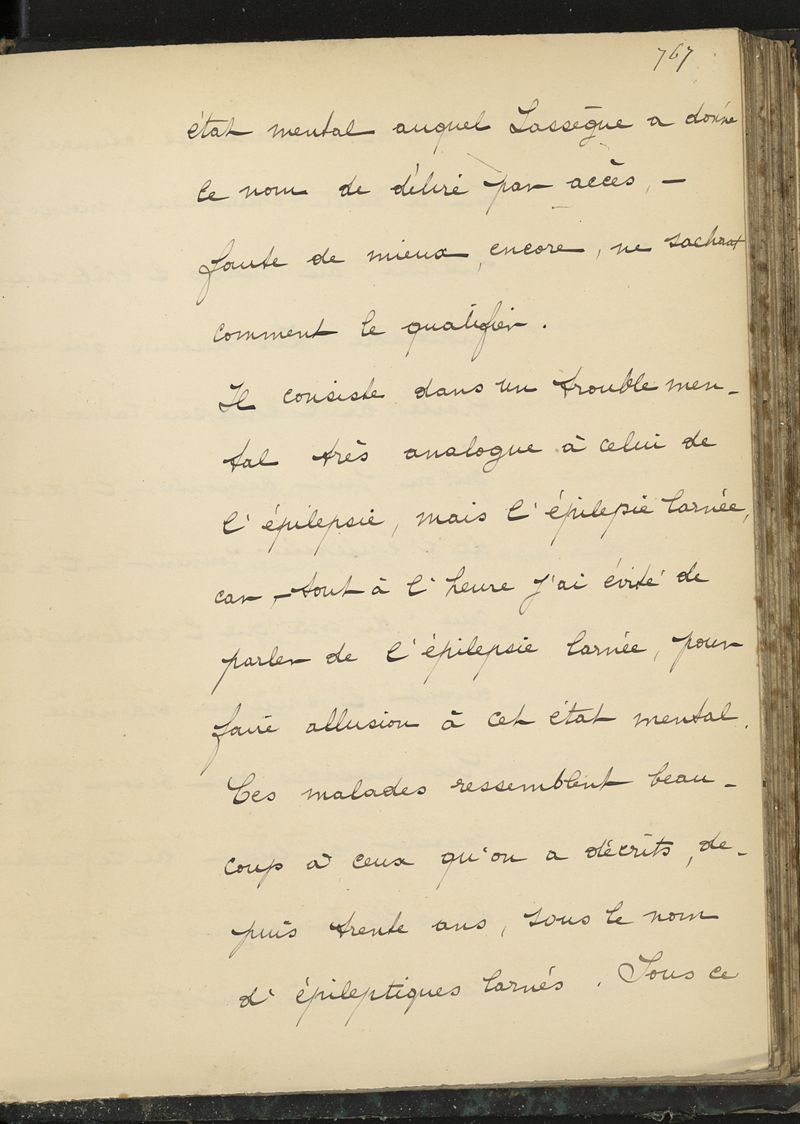 767
état mental auquel Lassègue a donné
le nom de délire par accès, —
faute de mieux, encore, ne sachant
comment le qualifier.
Il consiste dans un trouble men-
tal très analogue à celui de
l'épilepsie, mais l'épilepsie larvée,
car, tout à l'heure j'ai évité de
parler de l'épilepsie larvée, pour
faire allusion à cet état mental.
Ces malades ressemblent beau-
coup à ceux qu'on a décrits, de-
puis trente ans, sous le nom
d'épileptiques larvés. Sous ce